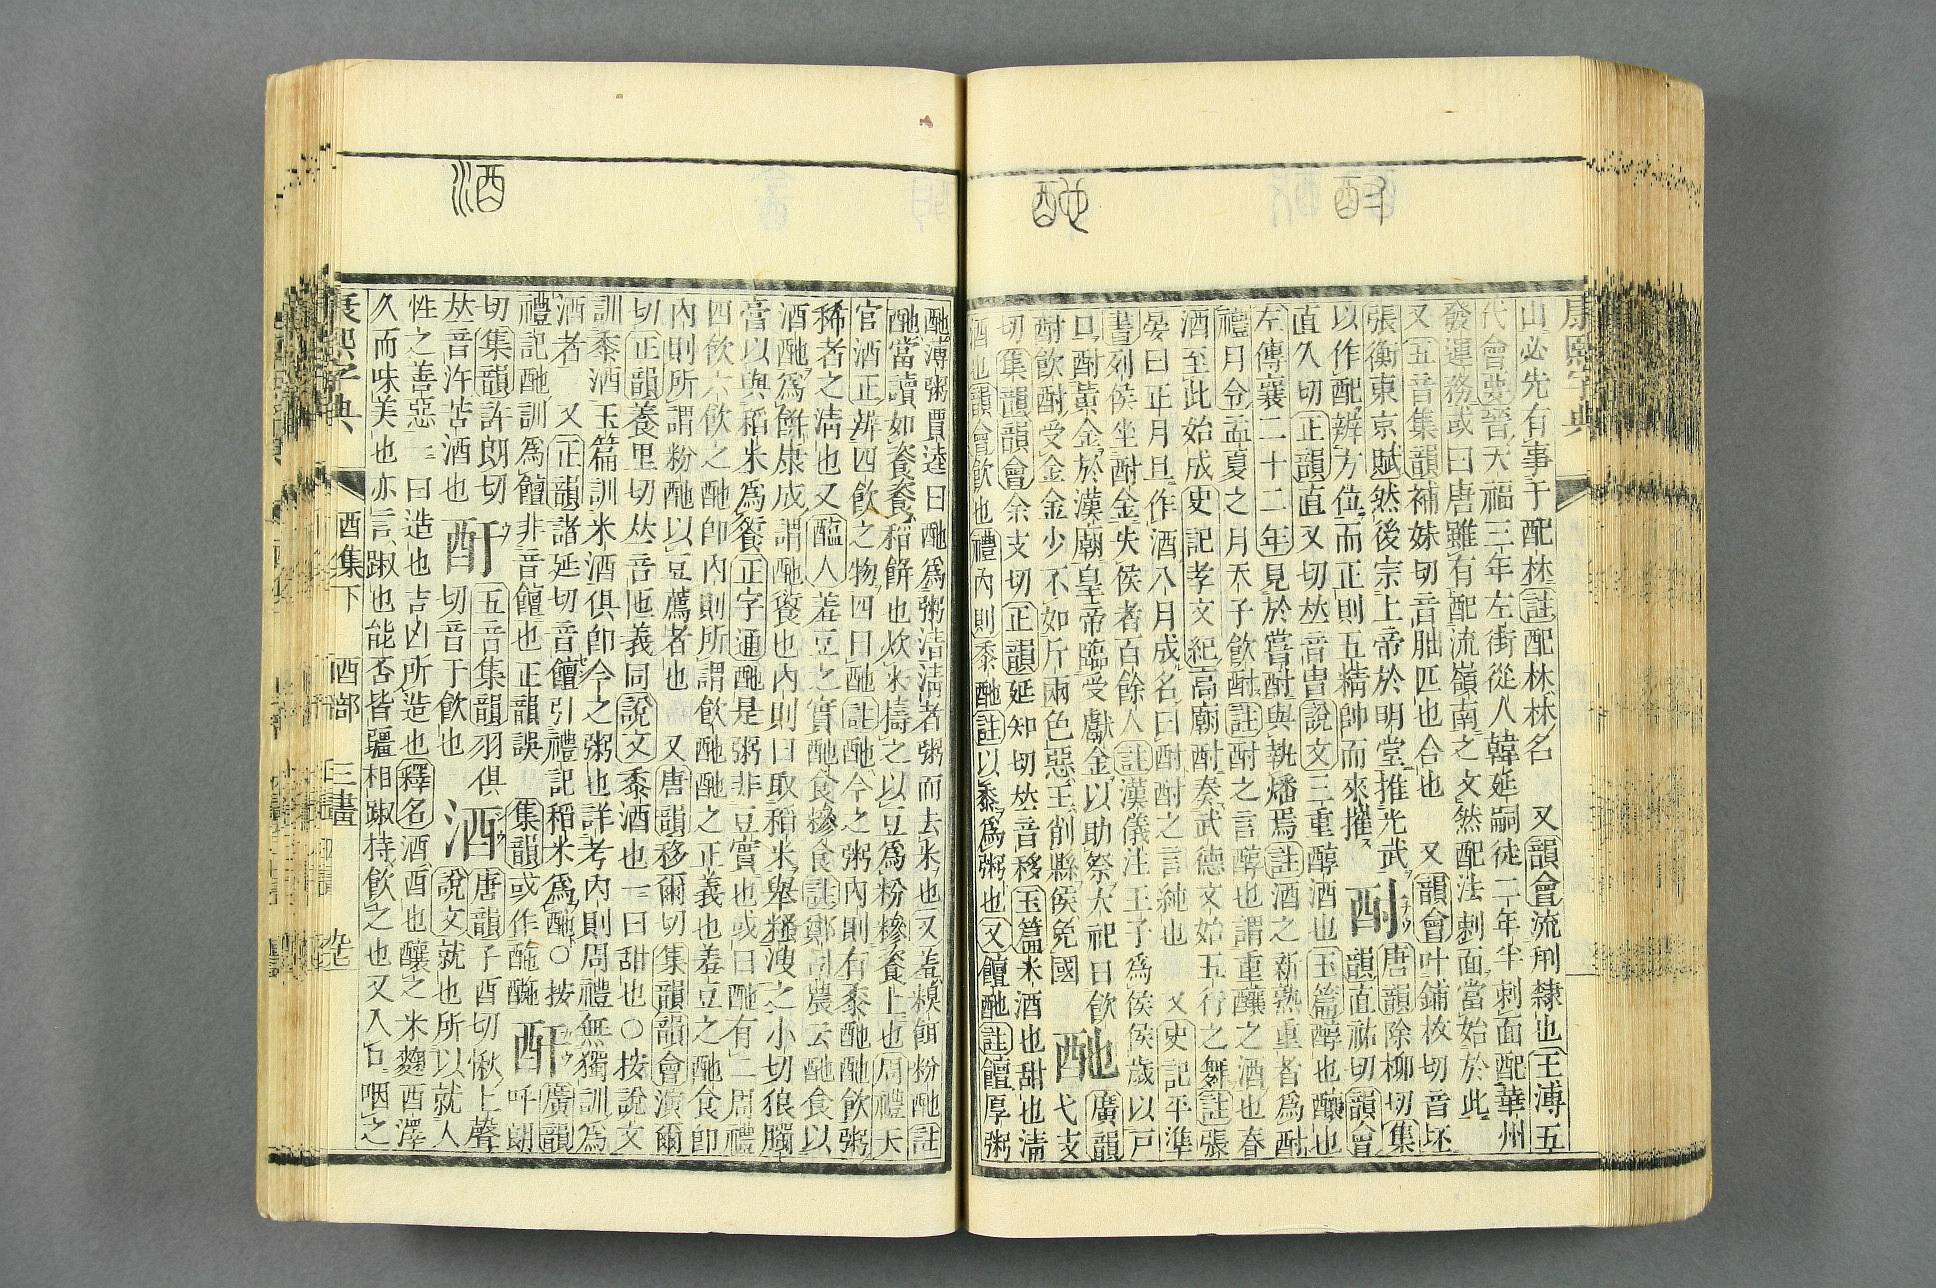 酎
酏
康熙字典
山必先有事于配林註配林林名　又韻會流刑隸也王溥五
代會要晉天福三年左街從人韓延嗣徒二年半刺面配華州
發運務或曰唐雖有配流嶺南之文然配法刺面當始於此
又五音集韻補妹切音朏匹也合也　又韻會叶鋪枚切音坯
張衡東京賦然後宗上帝於明堂推光武
以作配辨方位而正則五精帥而來摧
酎
唐韻除柳切集
韻直祐切韻會
直久切正韻直又切𠀤音胄說文三重醇酒也玉篇醇也釀也
左傳襄二十二年見於嘗酎與執燔焉註酒之新熟重者爲酎
禮月令孟夏之月天子飮酎註酎之言醇也謂重釀之酒也春
酒至此始成史記孝文紀高廟酎奏武德文始五行之舞註張
晏曰正月旦作酒八月成名曰酎酎之言純也　又史記平準
書列侯坐酎金失侯者百餘人註漢儀注王子爲侯侯歲以戸
口酎黃金於漢廟皇帝臨受獻金以助祭大祀日飮
酎飮酎受金金少不如斤兩色惡王削縣侯免國
酏
廣韻
弋支
切集韻韻會余支切正韻延知切𠀤音移玉篇米酒也甜也淸
酒也韻會飮也禮內則黍酏註以黍爲粥也又饘酏註饘厚粥
酒
酏薄粥賈逵曰酏爲粥淸淸者粥而去米也又羞糗餌粉酏註
酏當讀如餈餈稻餅也炊米擣之以豆爲粉糝餈上也周禮天
官酒正辨四飮之物四曰酏註酏今之粥內則有黍酏酏飮粥
稀者之淸也又醢人羞豆之實酏食糝食註鄭司農云酏食以
酒酏爲餅康成謂酏餰也內則曰取稻米舉糔溲之小切狼臅
膏以與稻米爲餰正字通酏是粥非豆實也或曰酏有二周禮
四飮六飮之酏卽內則所謂飮酏酏之正義也羞豆之酏食卽
內則所謂粉酏以豆薦者也　又唐韻移爾切集韻韻會演爾
切正韻養里切𠀤音迆義同說文黍酒也一曰甜也○按說文
訓黍酒玉篇訓米酒俱卽今之粥也詳考內則周禮無獨訓爲
酒者　又正韻諸延切音饘引禮記稻米爲酏○按
禮記酏訓爲饘非音饘也正韻誤　集韻或作䣾䣺
酐
廣韻
呼朗
切集韻許朗切
𠀤音汻苦酒也
酑
五音集韻羽俱
切音于飮也
酒
唐韻子酉切愀上聲
說文就也所以就人
性之善惡一曰造也吉凶所造也釋名酒酉也釀之米麴酉澤
久而味美也亦言踧也能否皆彊相踧持飮之也又入口咽之
康熙字典
酉集下　酉部　三畫